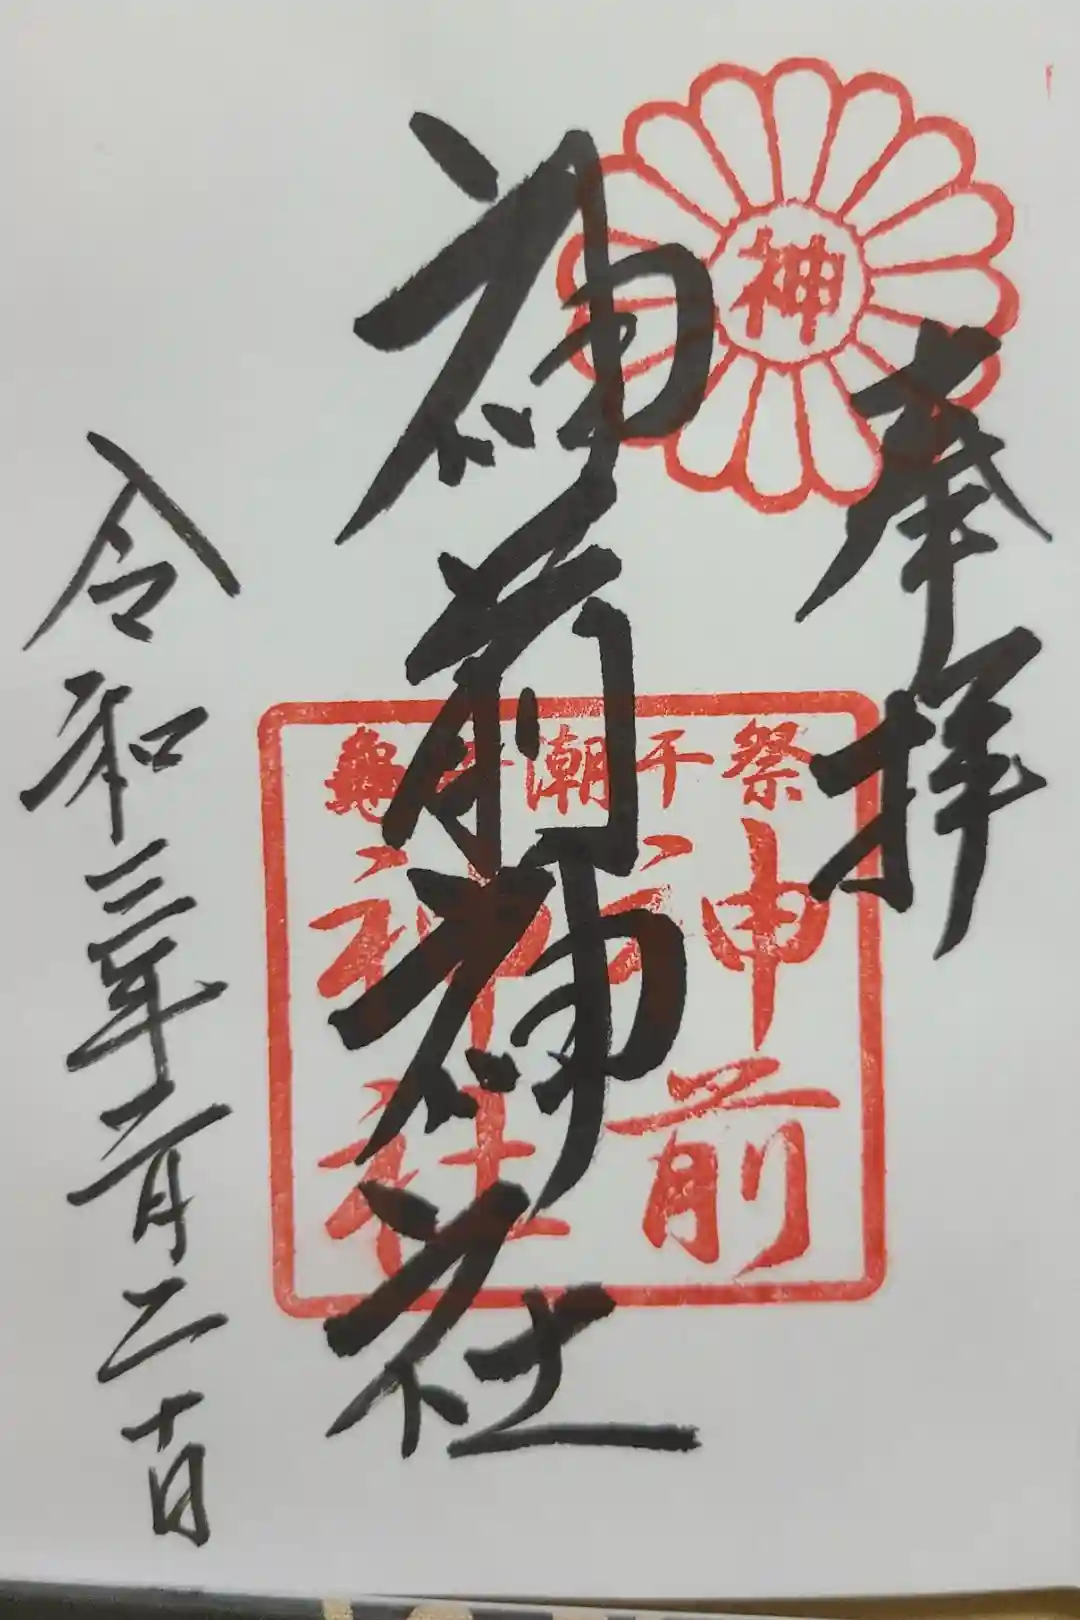 奉拝
神
神前神社
龜崎潮干祭
神前
神社
令和三年二月二十日